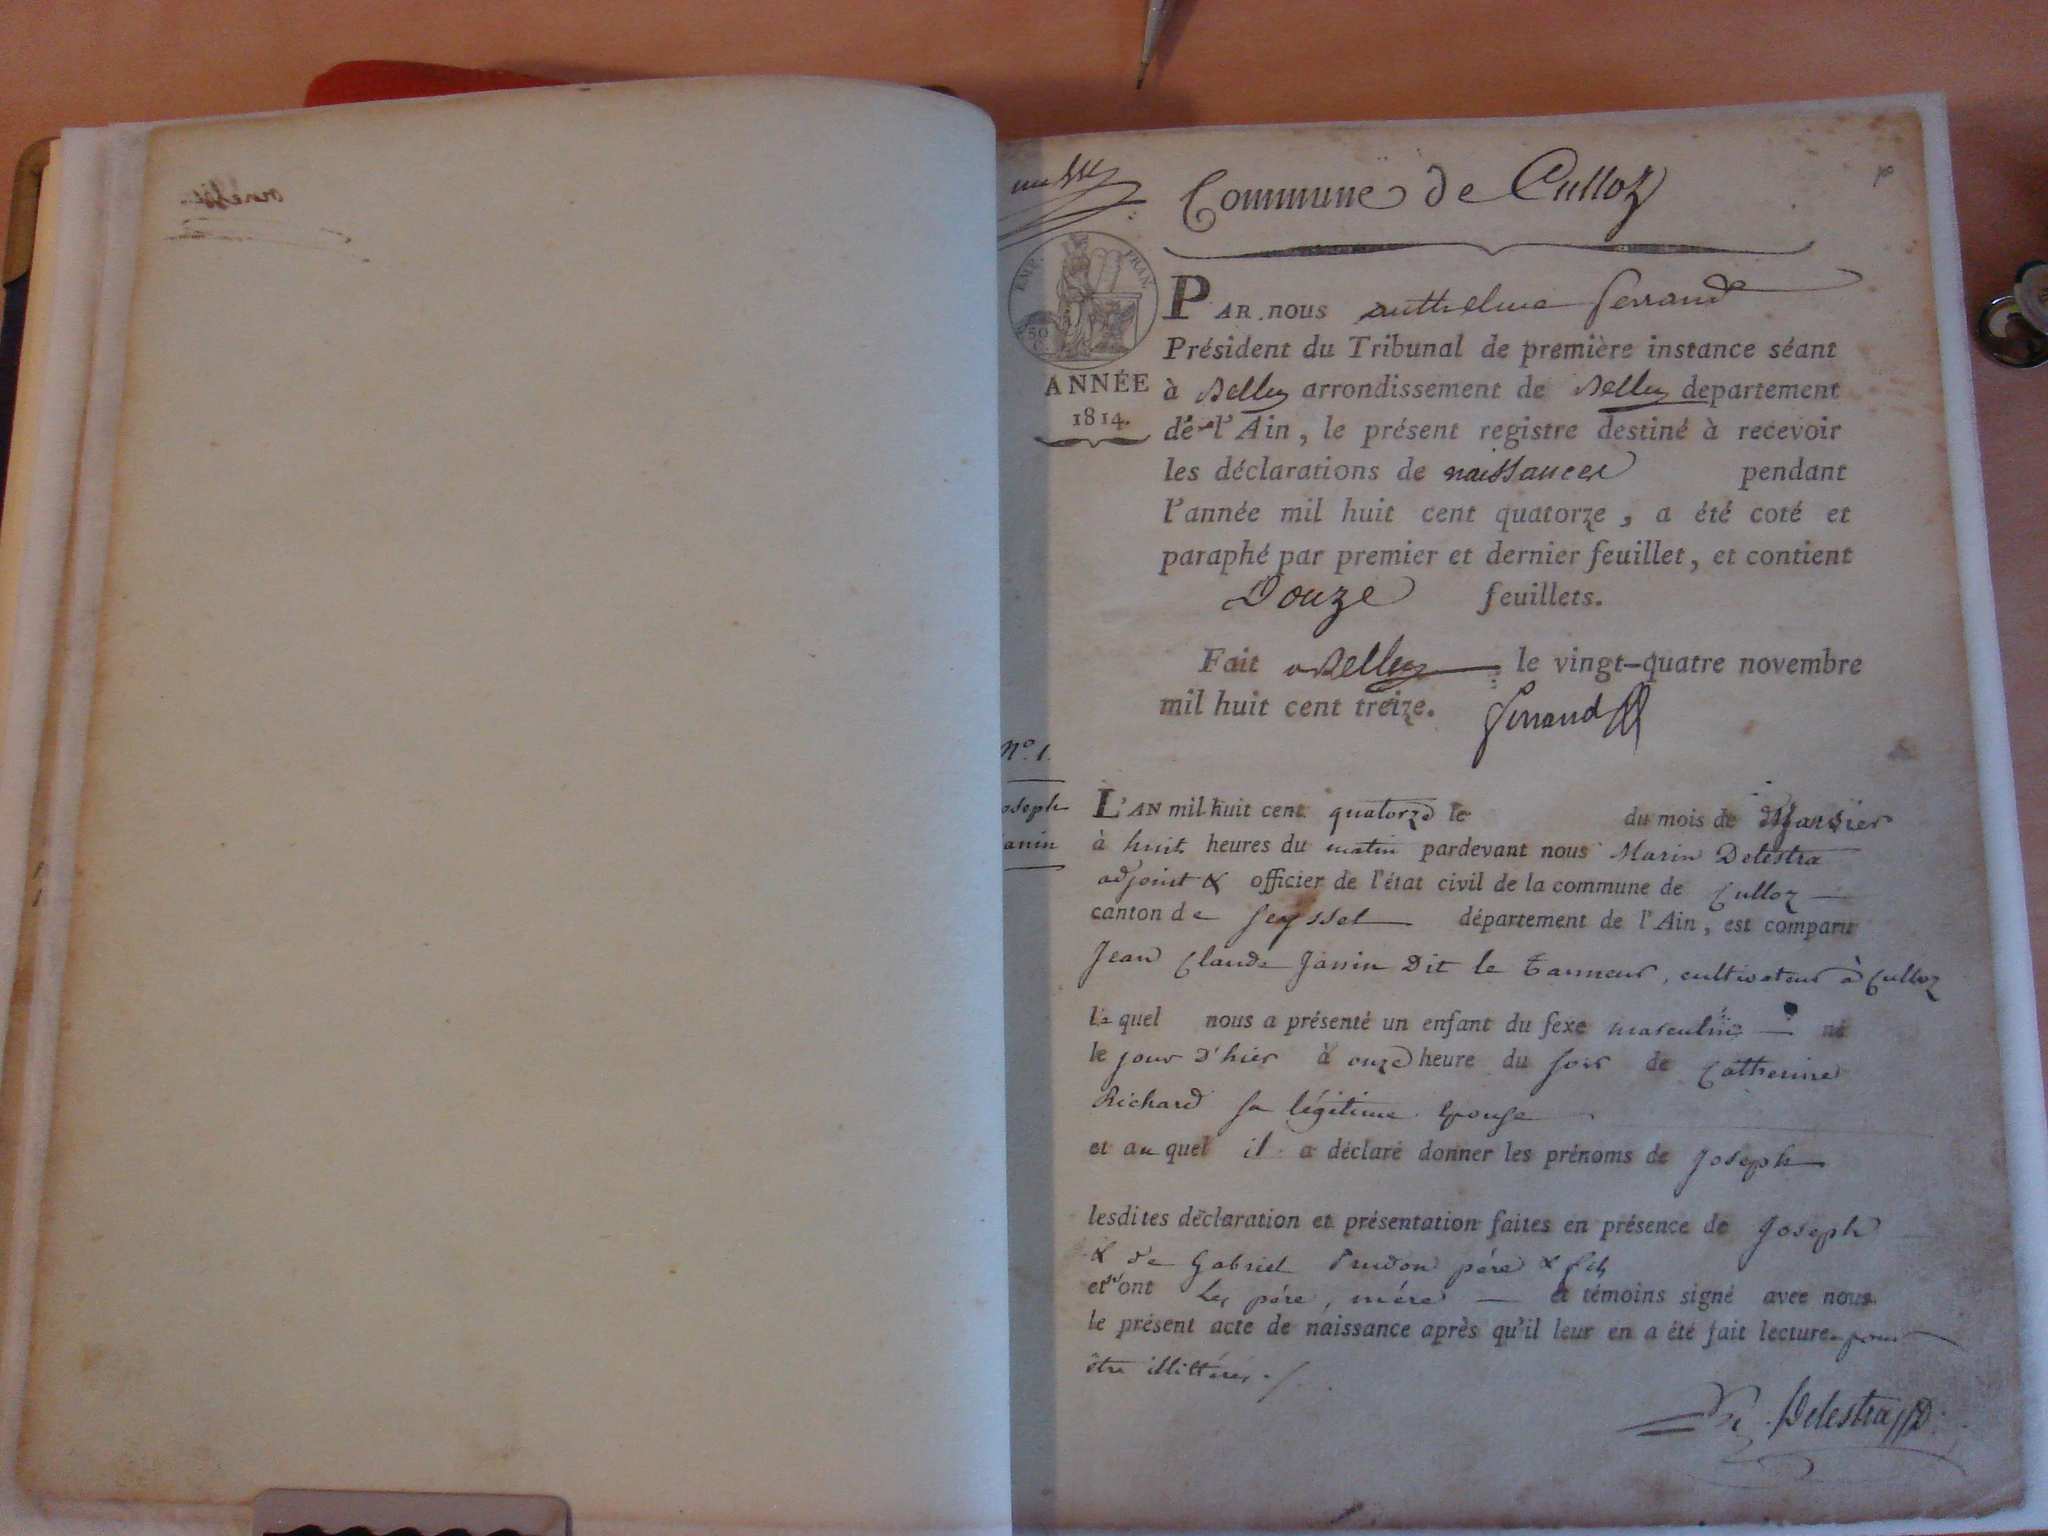 Commune de Culloz
EMP. FRAN.
50
C.
ANNÉE
1814.
PAR nous anthelme ferrand
Président du Tribunal de première instance séant
à Belley arrondissement de Belley departement
de l'Ain, le présent registre destiné à recevoir
les déclarations de naissances pendant
l'année mil huit cent quatorze, a été coté et
paraphé par premier et dernier feuillet, et contient
Douze feuillets.
Fait a Belley le vingt-quatre novembre
mil huit cent treize. ferrand
N.º 1.
oseph
anin
L'AN mil huit cent quatorze le du mois de
à huit heures du matin pardevant nous Marin Delestra
adjoint & officier de l'état civil de la commune de Culloz
canton de Seyssel département de l'Ain, est comparu
Jean Claude Janin Dit le tanneur, cultivateur à Culloz
le quel nous a présenté un enfant du sexe masculin né
le jour d'hier à onze heure du soir de Catherine
Richard sa légitime epouse
et au quel il a déclaré donner les prénoms de Joseph
lesdites déclaration et présentation faites en présence de Joseph
& de Gabriel Prudon pére & fils
et ont les pére, mére et témoins signé avec nous
le présent acte de naissance après qu'il leur en a été fait lecture pour
être illittérés.
Delestra